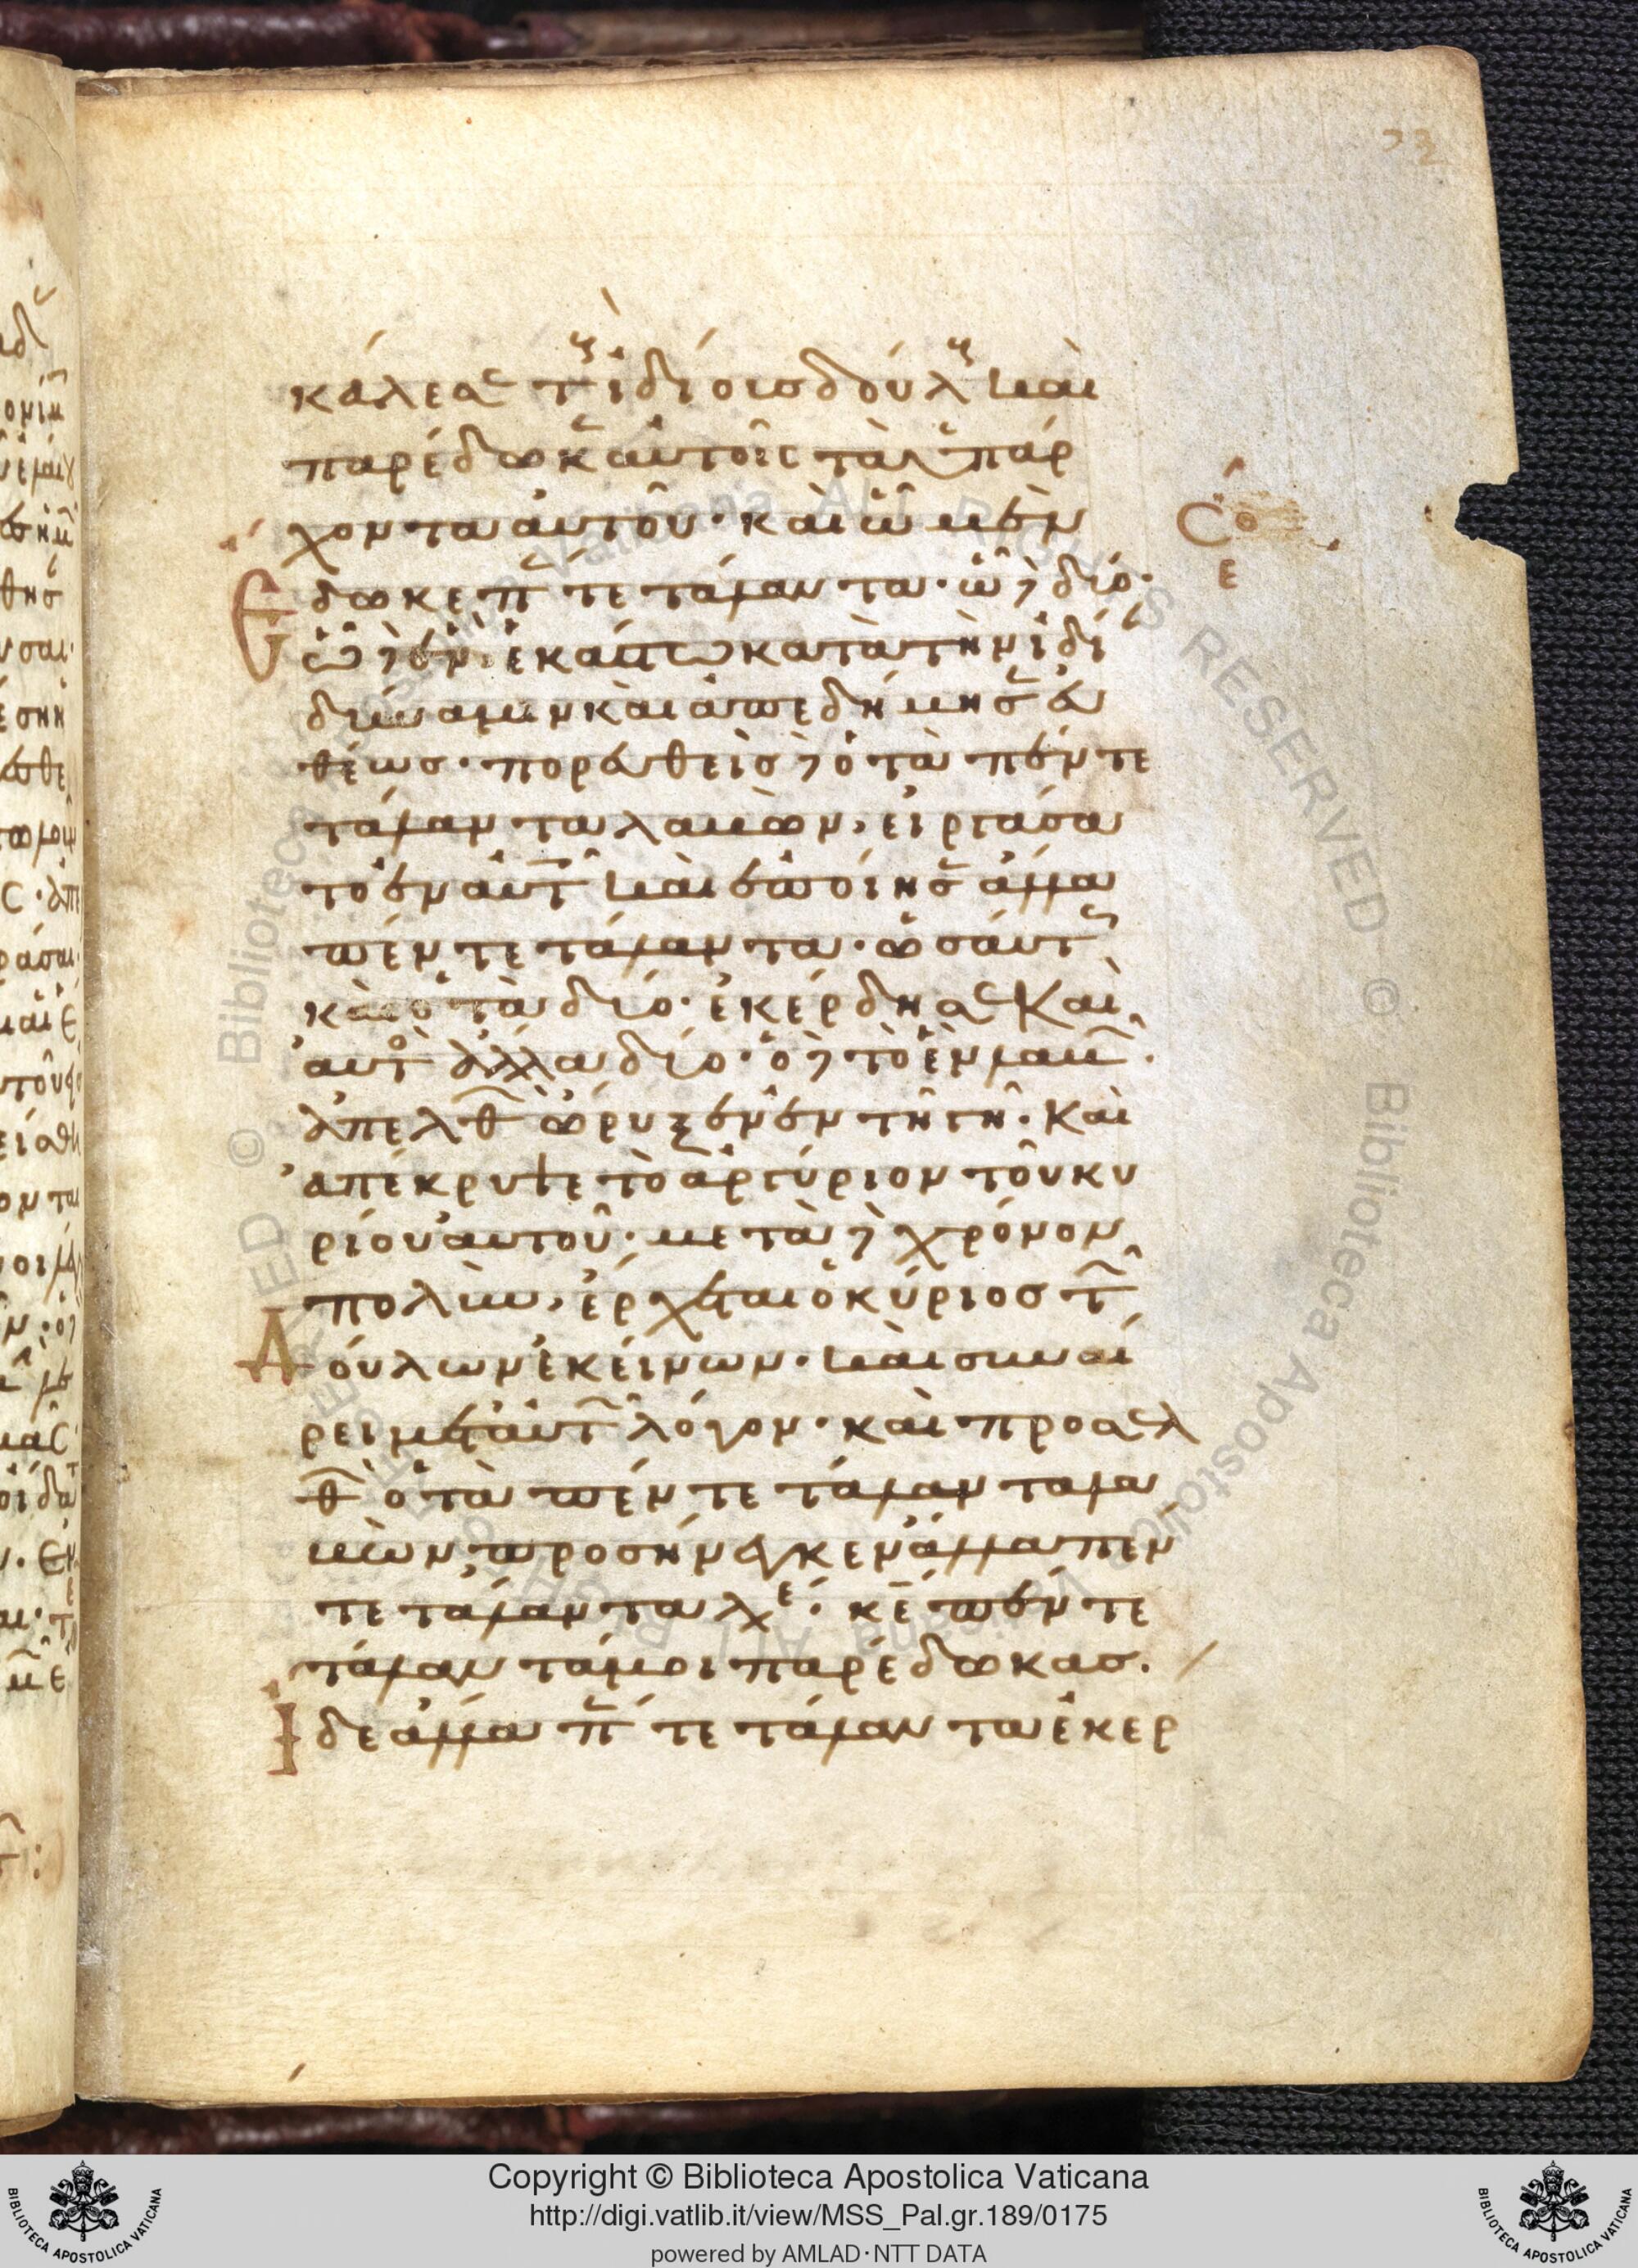 κάλεσ τ ἰδίοισ δούλ και
παρέδωκ αὐτοῖς τὰ ὑπάρ
χοντα αὐτοῦ· καὶ ὧ μὲν
Ἔδωκε πέντε τάλαντα· ὧ δὲ δύο·
ὧ δὲ ἕν· ἑκάστω κατὰ τὴν ἰδί
δύναμιν καὶ ἀπεδήμησ εὐ
θέωσ· πορευθεὶσ δὲ ὁ τὰ πέντε
τάλαντα λαμβων, εἰργάσα
το ἐν αὐτ καὶ ἐποίησ ἄλλα
πέντε τάλαντα· ὡσάυτ
καὶ ὁ τὰ δύο· ἐκέρδησ Καὶ
αὐτο ἄλλα δύο· ὁ δὲ τὸ ἓν λαβ·
ἀπελθ ὤρυξεν ἐν τῆ γῆ· Καὶ
ἀπέκρυψε τὸ ἀργύριον τοῦ κυ
ρίου αὐτοῦ· μετὰ δὲ χρόνον
πολὺν, ἔρχεται ὁ κύριοσ τ
Δούλων ἐκείνων· καὶ συναί
ρει μετ αὐτ λόγον· καὶ προσελ
θ ὁ τὰ πέντε τάλαντα λα
βὼν προσήνεγκεν ἄλλα πέν
τε τάλαντα λε· κε πέντε
τάλαντά μοι παρέδωκασ.
Ἴδε ἄλλα πέντε τάλαντα ἐκερ
Copyright © Biblioteca Apostolica Vaticana
http://digi.vatlib.it/view/MSS_Pal.gr.189/0175
powered by AMLAD·NTT DATA
BIBLIOTECA APOSTOLICA VATICANA
BIBLIOTECA APOSTOLICA VATICANA